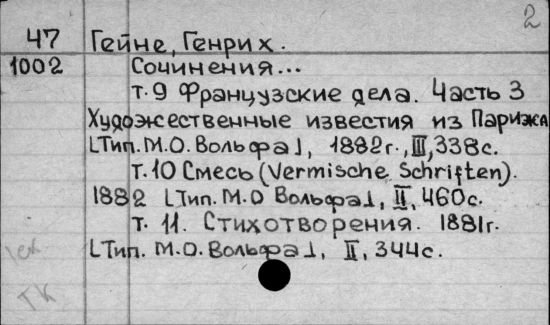 2
47 Гейне, Генрих.
1002 Сочинения...
т.9 Французские дела. Часть 3
Художественные известия из Парижа
[Тип. М.О. Вольфа], 1882г., III, 338с.
т.10 Смесь (Vermische Schriften).
1882 [Тип. М.О Вольфа], II, 460с.
т. 11. Стихотворения. 1881г.
[Тип. М.О. Вольфа], II, 344с.
ТК